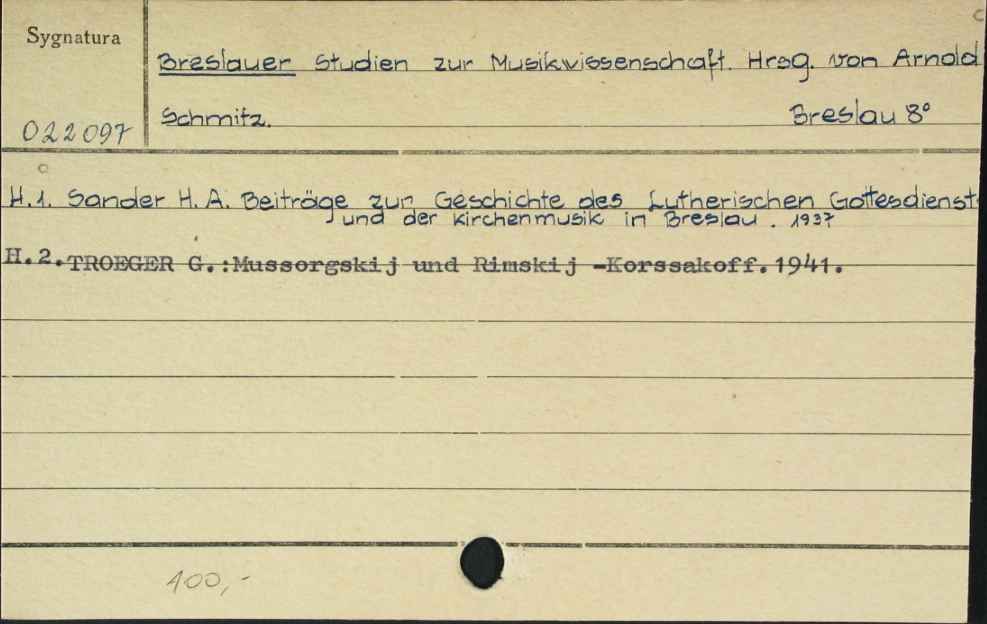 Sygnatura
Breslauer Studien zur Musikwissenschaft. Hrsg. von Arnold
Schmitz. Breslau 8°
022097
H.1. Sander H.A. Beiträge zur Geschichte des Lutherischen Gottesdienst
und der Kirchenmusik in Breslau. 1937
H.2. TROEGER G.:Mussorgskij und Rimskij -Korssakoff. 1941.
100,-